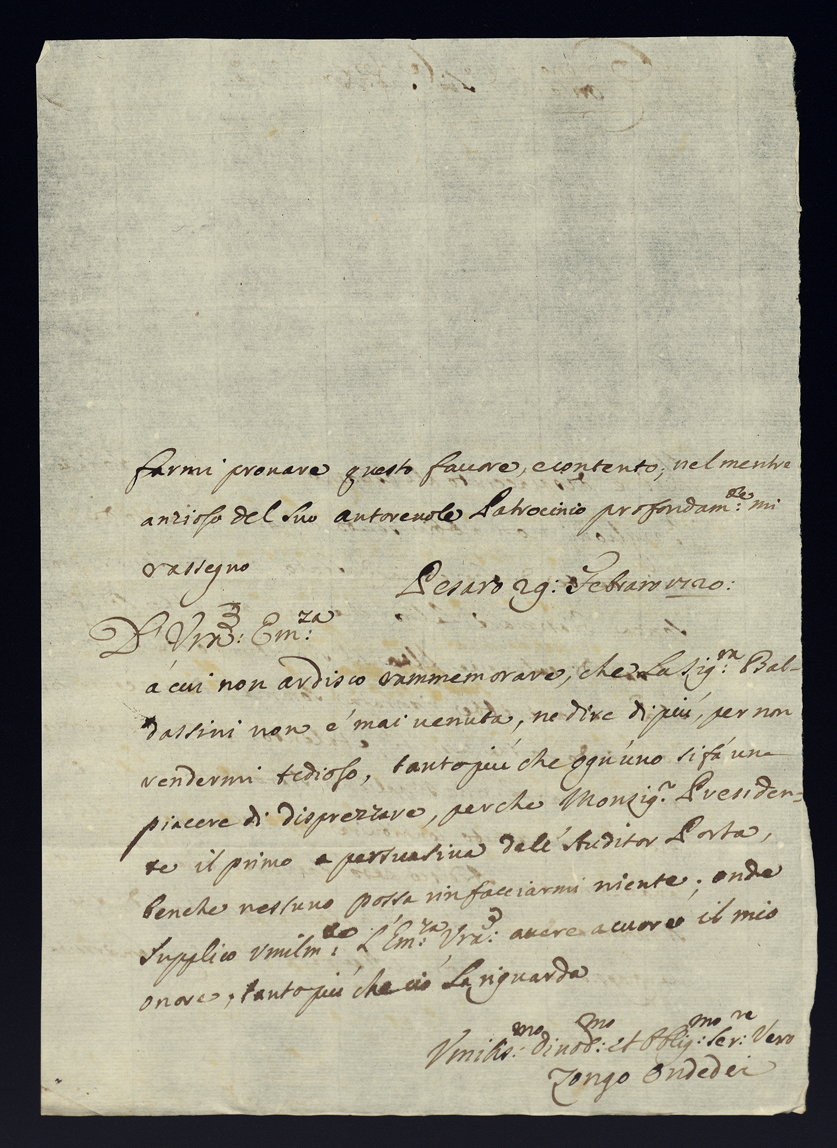 farmi prouare questo fauore, e contento, nel mentre
anzioso del suo autoreuole Patrocinio profondam:te mi
rassegno
Pesaro 29: Febraro 1720:
D' Vra: Em:za
á cui non ardisco rammemorare, che La Sig:ra Bal-
dassini non e' mai uenuta, ne dire di piú, per non
rendermi tedioso, tanto piú che ogn'uno si fá un
piacere di disprezzare, perche Monsig:r Presiden-
te il primo a persuasiua dell'Auditor Porta,
benche nessuno possa rinfacciarmi niente; onde
supplico vmilm:te L'Em:za Vra: auere a cuore il mio
onore, tanto piú che ció La riguarda
Vmilis:mo diuot:mo et Oblig:mo Ser:re Vero
Zongo Ondedei